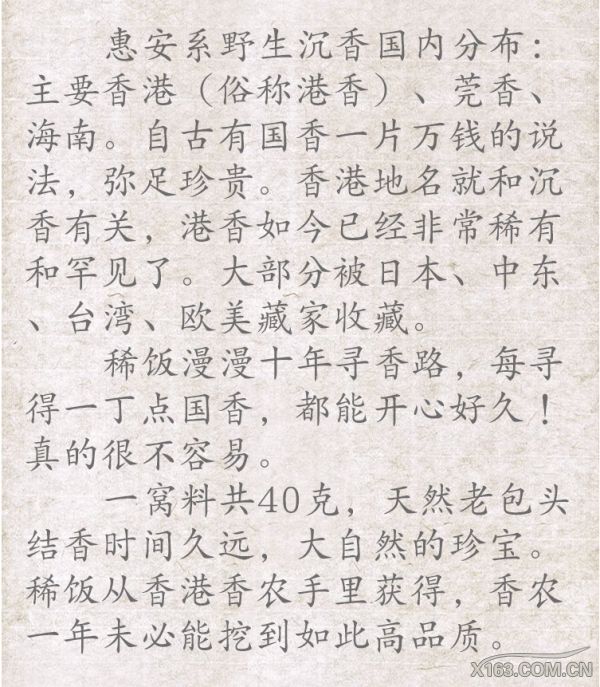 惠安系野生沉香国内分布：
主要香港（俗称港香）、莞香、
海南。自古有国香一片万钱的说
法，弥足珍贵。香港地名就和沉
香有关，港香如今已经非常稀有
和罕见了。大部分被日本、中东
、台湾、欧美藏家收藏。
稀饭漫漫十年寻香路，每寻
得一丁点国香，都能开心好久！
真的很不容易。
一窝料共40克，天然老包头
结香时间久远，大自然的珍宝。
稀饭从香港香农手里获得，香农
一年未必能挖到如此高品质。
X163.COM.CN